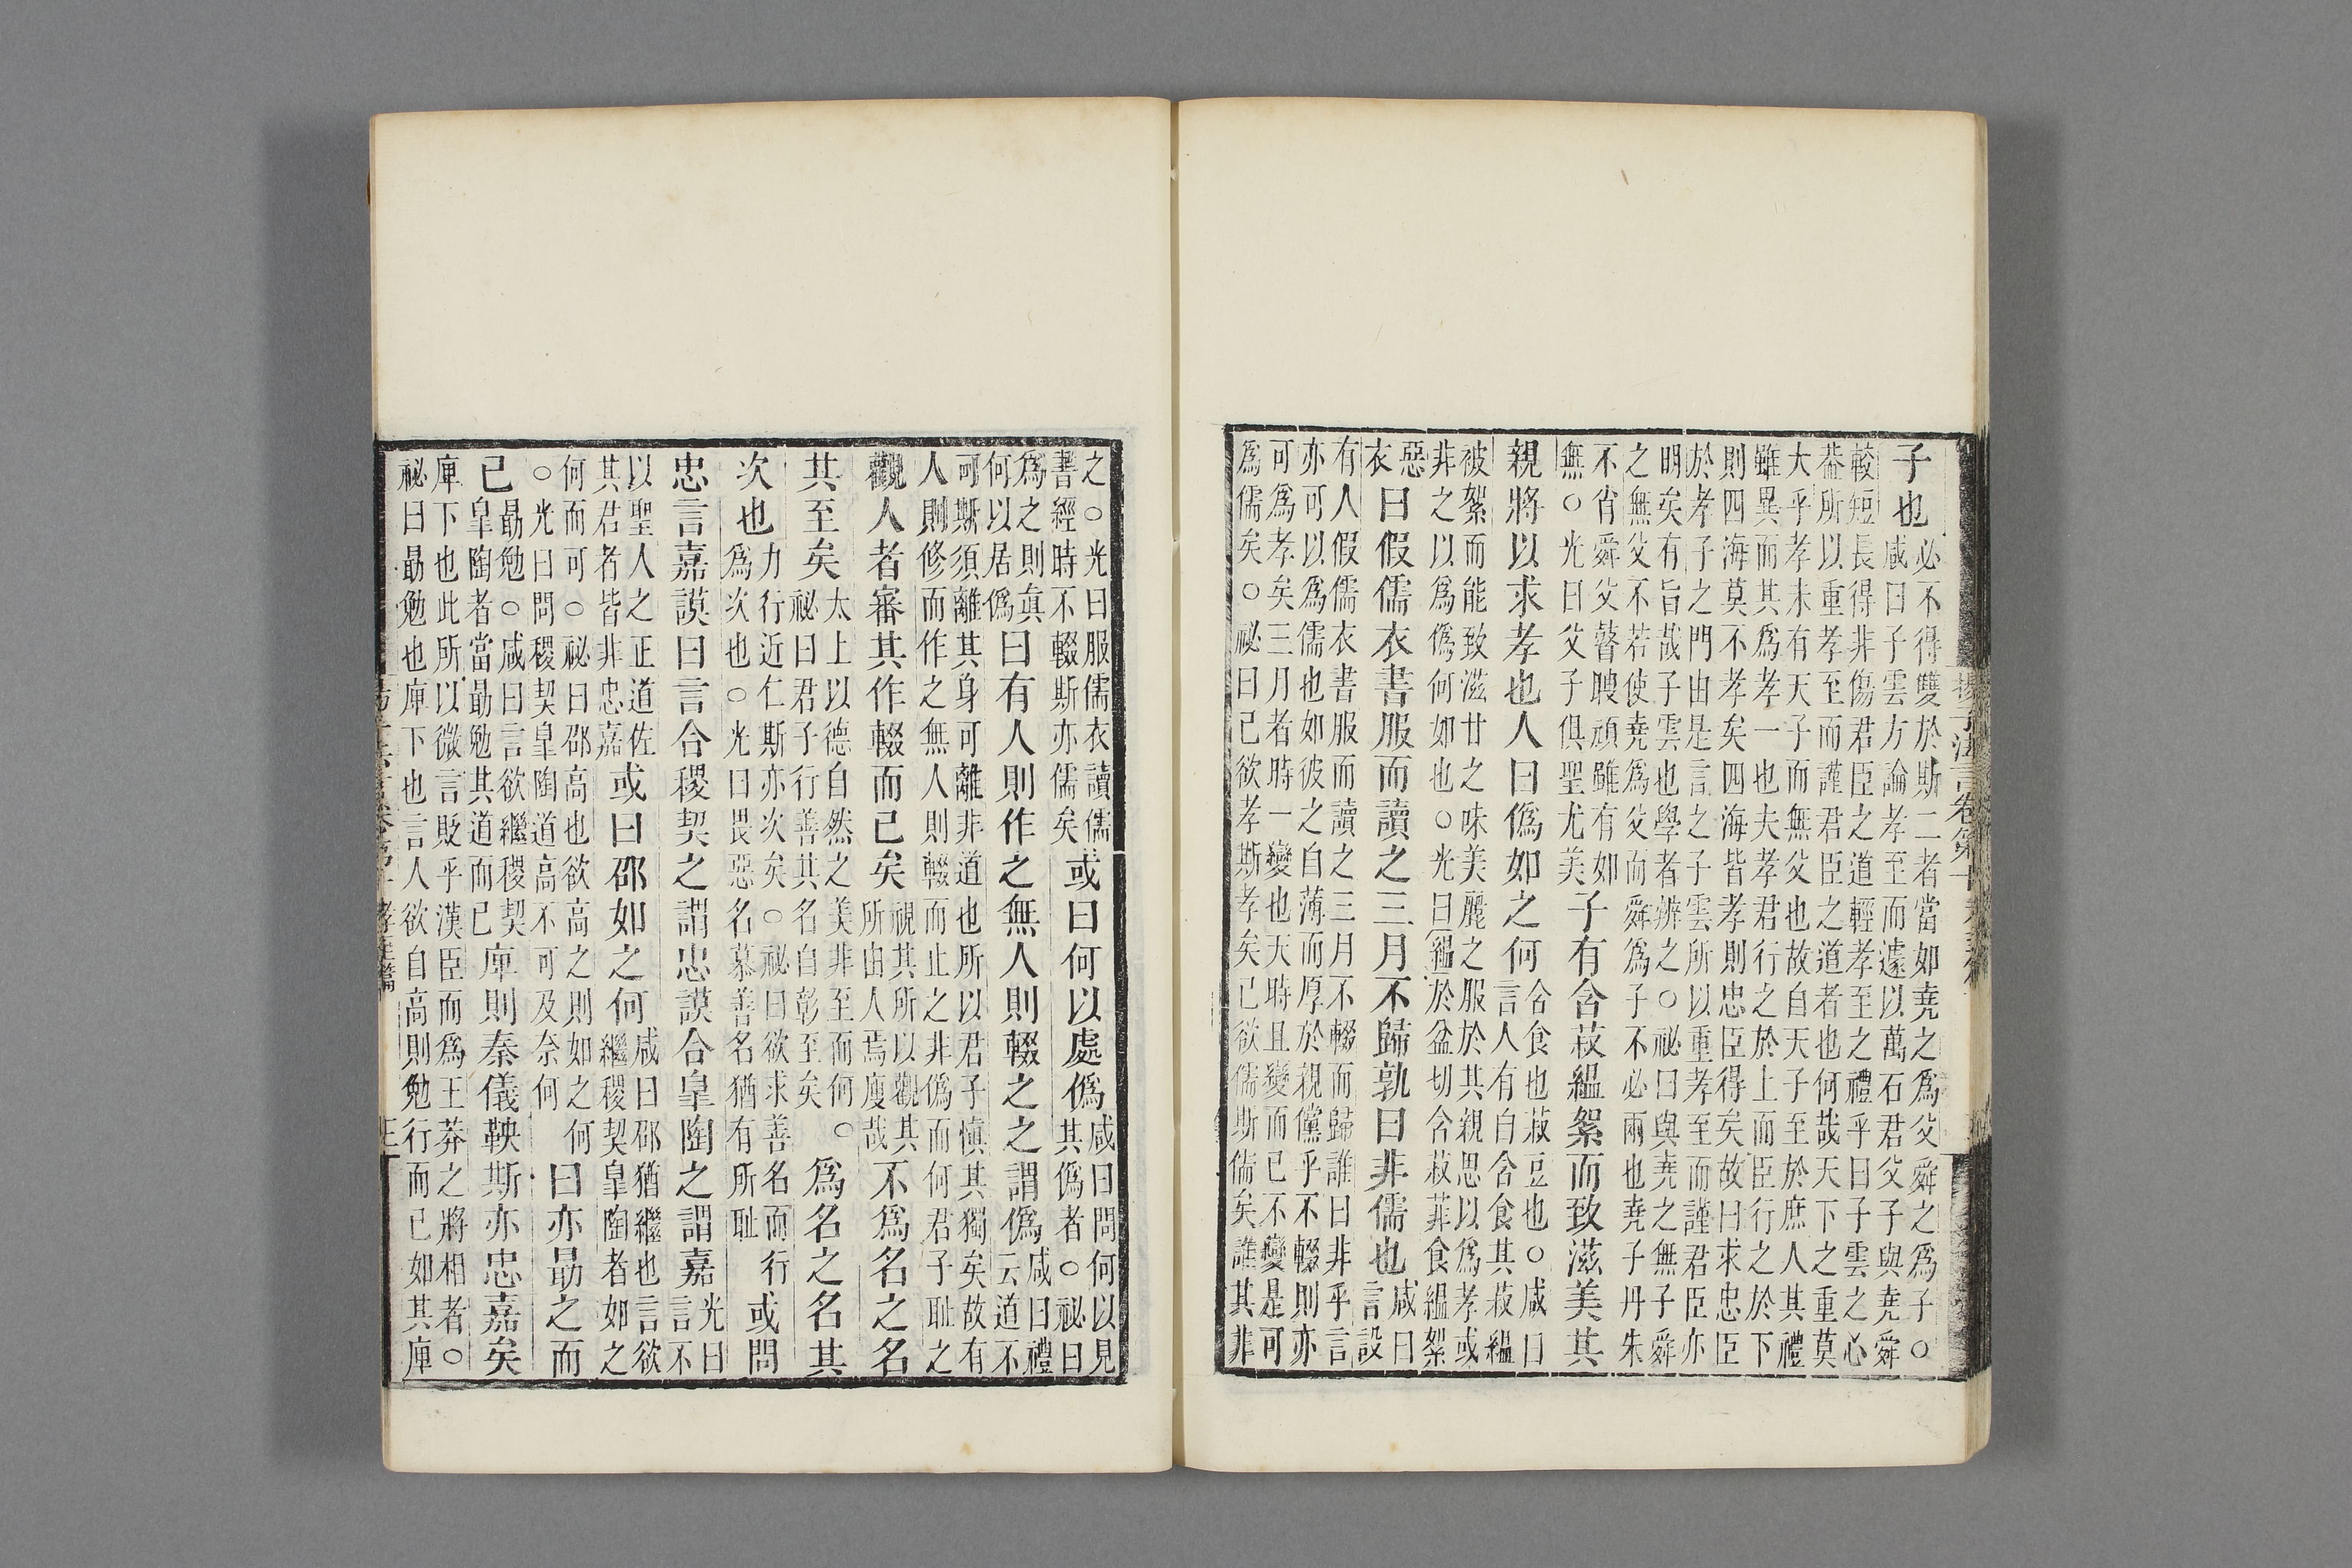 揚子法言卷第十 孝至篇
子也必不得雙於斯二者當如堯之爲父舜之爲子○
咸曰子雲方論孝至而遽以萬石君父子與堯舜
較短長得非傷君臣之道輕孝至之禮乎曰子雲之心
葢所以重孝至而謹君臣之道者也何哉天下之重莫
大乎孝未有天子而無父也故自天子至於庶人其禮
雖異而其爲孝一也夫孝君行之於上而臣行之於下
則四海莫不孝矣四海皆孝則忠臣得矣故曰求忠臣
於孝子之門由是言之子雲所以重孝至而謹君臣亦
明矣有旨哉子雲也學者辨之○祕曰與堯之無子舜
之無父不若使堯爲父而舜爲子不必兩也堯子丹朱
不省舜父瞽聩頑雖有如
無○光曰父子俱聖尤美
子有含菽縕絮而致滋美其
親將以求孝也人曰僞如之何
含食也菽豆也○咸曰
言人有自含食其菽縕
被絮而能致滋甘之味美麗之服於其親思以爲孝或
非之以爲僞何如也○光曰縕於盆切含菽菲食縕絮
惡
衣
曰假儒衣書服而讀之三月不歸孰曰非儒也
咸曰
言設
有人假儒衣書服而讀之三月不輟而歸誰曰非乎言
亦可以爲儒也如彼之自薄而厚於親儻乎不輟則亦
可爲孝矣三月者時一變也天時且變而已不變是可
爲儒矣○祕曰已欲孝斯孝矣已欲儒斯儒矣誰其非
之○光曰服儒衣讀儒
書經時不輟斯亦儒矣
或曰何以處僞
咸曰問何以見
其僞者○祕曰
爲之則眞
何以居僞
曰有人則作之無人則輟之之謂僞
咸曰禮
云道不
可斯須離其身可離非道也所以君子愼其獨矣故有
人則修而作之無人則輟而止之非僞而何君子耻之
觀人者審其作輟而已矣
視其所以觀其
所由人焉廋哉
不爲名之名
其至矣
太上以德自然之美非至而何○
祕曰君子行善其名自彰至矣
爲名之名其
次也
力行近仁斯亦次矣○祕曰欲求善名而行
爲次也○光曰畏惡名慕善名猶有所耻
或問
忠言嘉謨曰言合稷契之謂忠謨合皐陶之謂嘉
光曰
言不
以聖人之正道佐
其君者皆非忠嘉
或曰邵如之何
咸曰邵猶繼也言欲
繼稷契皐陶者如之
何而可○祕曰邵高也欲高之則如之何
○光曰問稷契皐陶道高不可及奈何
曰亦勗之而
已
勗勉○咸曰言欲繼稷契
皐陶者當勗勉其道而已
庳則秦儀鞅斯亦忠嘉矣
庳下也此所以微言貶乎漢臣而爲王莽之將相者○
祕曰勗勉也庳下也言人欲自高則勉行而已如其庳